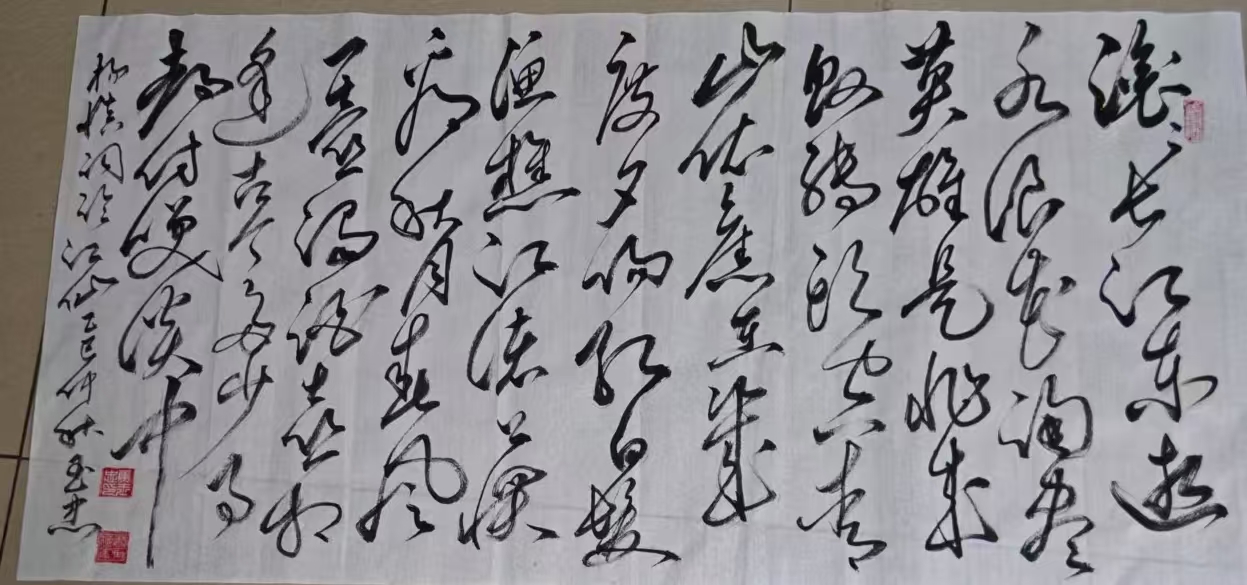 滚滚长江东逝
水浪花淘尽
英雄是非成
败转头空青
山依旧在几
度夕阳红白髮
渔樵江渚上惯
看秋月春风
一壶浊酒喜相
逢古今多少事
都付笑谈中
杨慎词临江仙乙巳仲秋玉杰